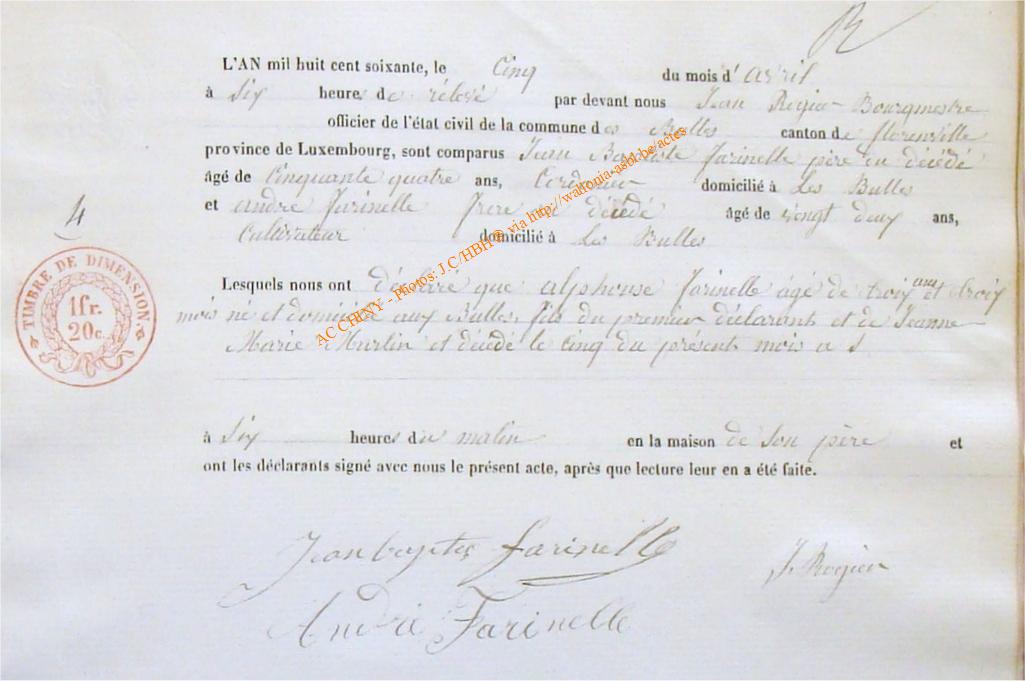 R
L'AN mil huit cent soixante, le Cinq du mois d'avril
à Six heures de relevé par devant nous Jean Rogier Bourgmestre
officier de l'état civil de la commune des Bulles canton de florenville
province de Luxembourg, sont comparus Jean Baptiste Farinelle père du décédé
âgé de Cinquante quatre ans, Cordonnier domicilié à Les Bulles
et andré Farinelle frere du décédé âgé de vingt deux ans,
4
Cultivateur domicilié à Les Bulles
Lesquels nous ont déclaré que alphonse Farinelle âgé de troix ans et troix
mois né et domicilié aux Bulles, fils du premier déclarant et de Jeanne
Marie Murlin et décédé le cinq du présent mois a s
TIMBRE DE DIMENSION.
1fr.
20c.
à Six heures du matin en la maison de son père et
ont les déclarants signé avec nous le présent acte, après que lecture leur en a été faite.
Jeanbaptis farinelle
J. Rogier
André Farinelle
AC CHINY - Photos: J.C/HBH® via http://wallonia-asbl.be/actes